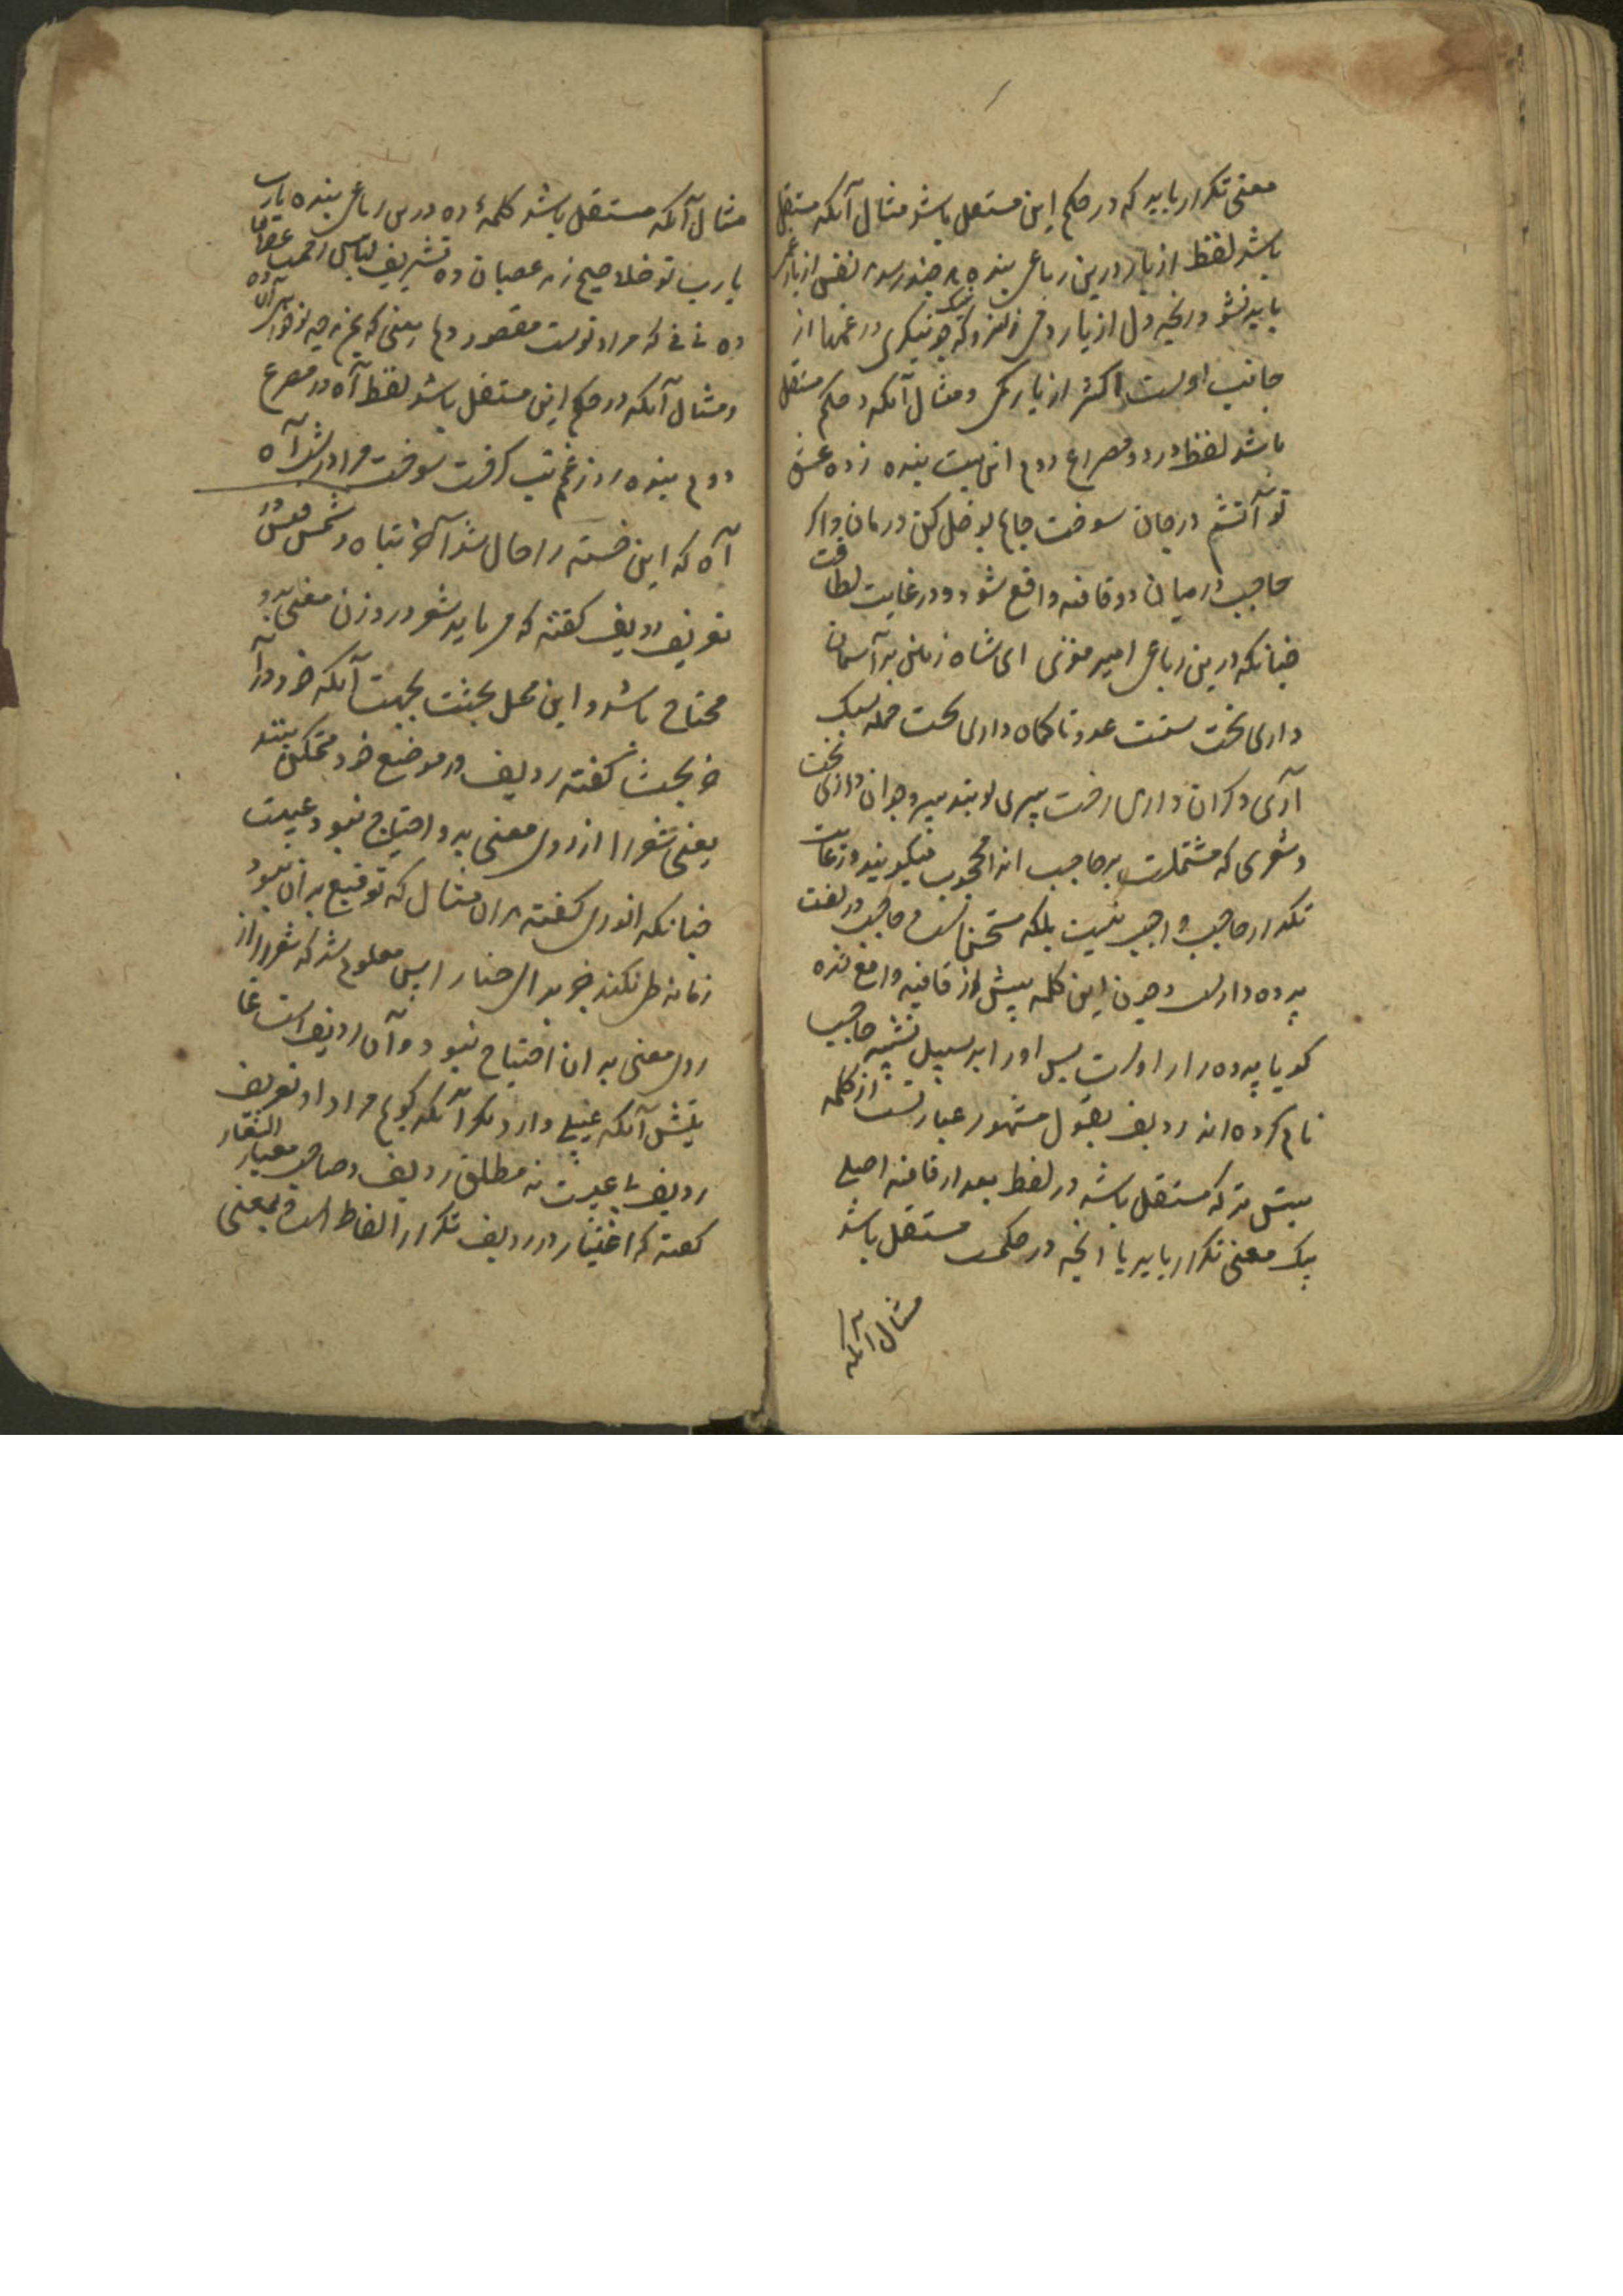 معنی تکرار یابد که در حکم این مستقل باشد مثال آنکه مستقل
باشد لفظ از یار درین رباعی بنده هر چند رسد نفس از یار غمی
باید نشود رنجه دل از یار دمی زانرو که چو نیک بنگری در غمها از
جانب اوست اکثر از یار کمی و مثال آنکه در حکم مستقل
باشد لفظ در دو مصراع دوم این بیت بنده زد عشق
تو آتشم در جان سوخت جانم بوصل کن درمان و اگر
حاجب درمیان دو قافیه واقع شود در غایت لطافت
چنانکه درین رباعی امیر معزی ای شاه زمین بر آسمان
داری تخت سستست عدو تا کمان داری سخت حمله سبک
آری و گران داری رخت پیری تو بتدبیر و جوان داری بخت
و شعری که مشتملست بر حاجب انرا محجوب میگویند و رعایت
تکرار حاجب واجب نیست بلکه مستحسن است و حاجب در لغت
پرده دارست و چون این کلمه پیش از قافیه واقع شده
گویا پرده دار اوست پس او را بر سبیل تشبیه حاجب
نام کرده اند ردیف بقول مشهور عبارتست از کلمه
بیش تر که مستقل باشد در لفظ بعد از قافیه اصلی
یک معنی تکرار یابد یا انچه در حکم مستقل باشد
مثال آنکه
مثال آنکه مستقل باشد کلمهٔ ده درین رباعی بنده یارب
یارب تو خلاصیم ز عصیان ده تشریف لباس رحمت
ده نی نی که مراد تست مقصود دلم یعنی که بمن هر چه تو خواهی آن ده
و مثال آنکه در حکم این مستقل باشد لفظ آه در مصرع
دوم بنده روز غم تب گرفت سوخت مرا درش آه
آه که این خسته را حال شد آخر تباه و شمس قیس در
تعریف ردیف گفته که می باید شعر در وزن معنی بدو
محتاج باشد و این محل بحثست بجهت آنکه خود در آ
خر بحث گفته ردیف در موضع خود متمکن
یعنی شعر را از روی معنی بدو احتیاج نبود عیبست
چنانکه انوری گفته بران مثال که توقیع بران نبود
زمانه طی نکند جز برای حنا را پس معلوم شد که شعر را از
روی معنی بدان احتیاج نبود و آن ردیف است غا
یتش آنکه عیبی دارد مگر آنکه گویم مراد او تعریف
ردیف بی عیبست نه مطلق ردیف و صاحب معیار
گفته که اعتبار در ردیف تکرار الفاظ است و بمعنی